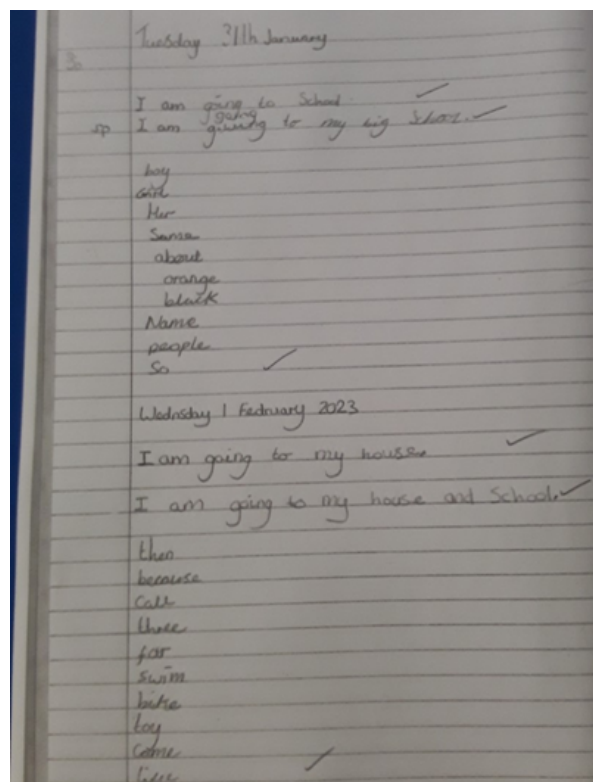 Tuesday 31th January
I am going to School.
going
sp I am giuwng to my big School.
boy
Girl
Her
Same
about
orange
black
Name
people
So
Wednsday 1 Fedruary 2023
I am going to my house.
I am going to my house and School.
then
because
Call
three
far
swim
bike
toy
Come